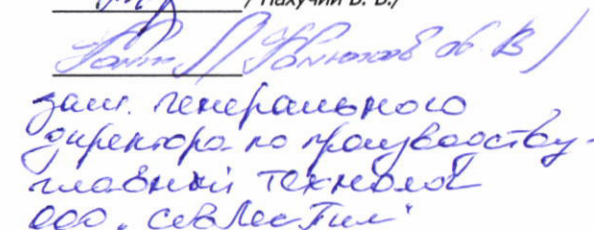 / Пахучий В. В./
зам. генерального
директора по производству-
главный технолог
ООО "СевЛесПил"